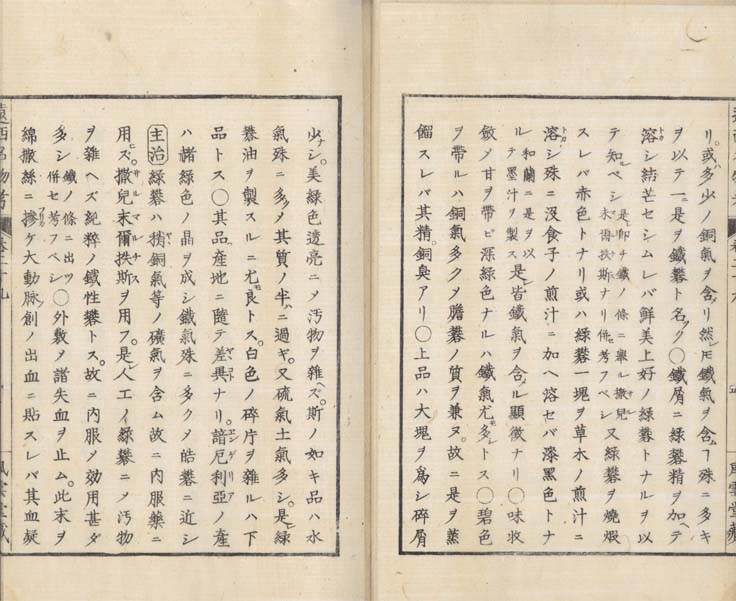 リ。或ハ多少ノ銅氣ヲ含メリ然レ𪜈鐵氣ヲ含ムヿ殊ニ多キ
ヲ以テ一ニ是ヲ鐵礬ト名ク〇鐵屑ニ綠礬精ヲ加ヘテ
溶シ結芒セシムレバ鮮美上好ノ綠礬トナルヲ以
テ知ルベシ是レ即チ鐵ノ條ニ舉ル撒兒末爾扶斯ナリ併セ考フベシ又綠礬ヲ燒煆
スレバ赤色トナリ或ハ綠礬一塊ヲ草木ノ煎汁ニ
溶シ殊ニ沒食子ノ煎汁ニ加ヘ溶セバ漆黑色トナ
ル和蘭ニ是ヲ以テ墨汁ヲ製ス是レ皆鐵氣ヲ含メル顯徵ナリ〇味收
斂ノ甘ヲ帶ビ深綠色ナルハ鐵氣尤多シトス〇碧色
ヲ帶ルハ銅氣多ク膽礬ノ質ヲ兼ヌ。故ニ是ヲ蒸
餾スレバ其精銅臭アリ〇上品ハ大塊ヲ爲シ碎屑
少ナシ。美綠色透亮ニメ汚物ヲ雜ヘズ。斯ノ如キ品ハ水
氣殊ニ多メ其質ノ半ニ過ギ。又硫氣土氣多シ。是レ綠
礬油ヲ製スルニ尤良トス。白色ノ碎片ヲ雜ルハ下
品トス〇其品産地ニ隨テ差異ナリ。諳厄利亞ノ産
ハ緒綠色ノ晶ヲ成シ鐵氣殊ニ多クメ皓礬ニ近シ
主治 綠礬ハ猶銅氣等ノ礦氣ヲ含ム故ニ内服藥ニ
用ヒズ。撒兒末爾扶斯ヲ用フ。是レ人工ノ綠礬ニメ汚物
ヲ雜ヘズ純粹ノ鐵性礬トス。故ニ内服メ効用甚ダ
多シ鐵ノ條ニ出ツ併セ考フベシ〇外敷メ諸失血ヲ止ム。此末ヲ
綿撒絲ニ摻ケ大動脉創ノ出血ニ貼スレバ其血凝
遠西名物考
卷二十九
風雲堂藏